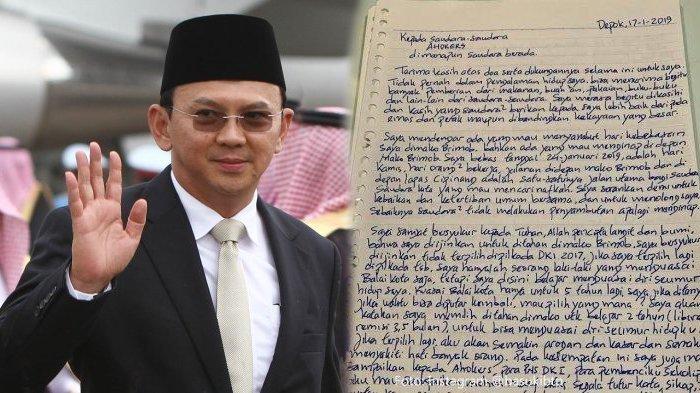 Depok, 17-1-2019
Kepada Saudara-saudara
AHOKERS
dimanapun saudara berada.
Terima kasih atas doa serta dukungannya selama ini untuk saya.
Tidak pernah dalam pengalaman hidup saya, bisa menerima begitu
banyak pemberian dari makanan, buah an, pakaian, buku-buku
dan lain-lain dari saudara-saudara. Saya merasa begitu dikasihi
dan kasih yang saudara2 berikan kepada saya lebih baik dari pada
emas dan perak maupun dibandingkan kekayaan yang besar.
Saya mendengar ada yang mau menyambut hari kebebasan
saya dimako Brimob. bahkan ada yang mau menginap di depan
Mako Brimob. Saya bebas tanggal 24 januari 2019, adalah hari
Kamis, hari orang2 bekerja, jalanan didepan mako Brimob dan di
depan Lapas Cipinang adalah satu-satunya jalan utama bagi saudara
saudara kita yang mau mencari nafkah. Saya sarankan demi untuk
kebaikan dan ketertiban umum bersama, dan untuk menolong saya,
Sebaiknya saudara2 tidak melakukan penyambutan apalagi menginap.
Saya sangat bersyukur kepada Tuhan, Allah pencipta langit dan bumi,
bahwa saya diijinkan untuk ditahan dimako Brimob. Saya bersyukur
diijinkan tidak terpilih dipilkada DKI 2017. jika saya terpilih lagi
dipilkada tsb, saya hanyalah seorang laki-laki yang menguasai
Balai kota saja, tetapi saya disini belajar menguasai diri seumur
hidup saya. Kuasai Balai kota hanya untuk 5 tahun lagi. Saya jika ditanya
jika waktu bisa diputar kembali, mau pilih yang mana? saya akan
katakan saya memilih ditahan dimako utk belajar 2 tahun (liburan
remisi 3,5 bulan), untuk bisa menguasai diri seumur hidupku.
jika terpilih lagi, aku akan semakin arogan dan kasar dan semakin
menyakiti hati banyak orang. Pada kesempatan ini saya juga mau
sampaikan kepada Ahokers, para PNS DKI, para pembenciku sekalipun
aku segala tutur kata, sikap,
Foto: Instagram @basukibtp